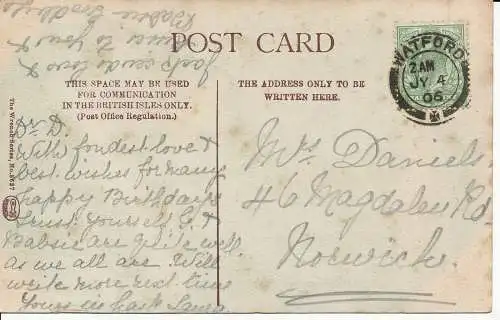 POST CARD
THIS SPACE MAY BE USED
FOR COMMUNICATION
IN THE BRITISH ISLES ONLY.
(Post Office Regulation.)
THE ADDRESS ONLY TO BE
WRITTEN HERE.
WATFORD
2 AM
JY 4
06
The Wrench Series, No. 8627
Dr D.
With fondest love &
best wishes for many
happy Birthdays
trust yourself G. &
Babsie are quite well
as we all are. Will
write more next time
Yours in haste
Jack sends love &
to you &
Babsie
Mrs Daniels
46 Magdalen Rd
Norwich